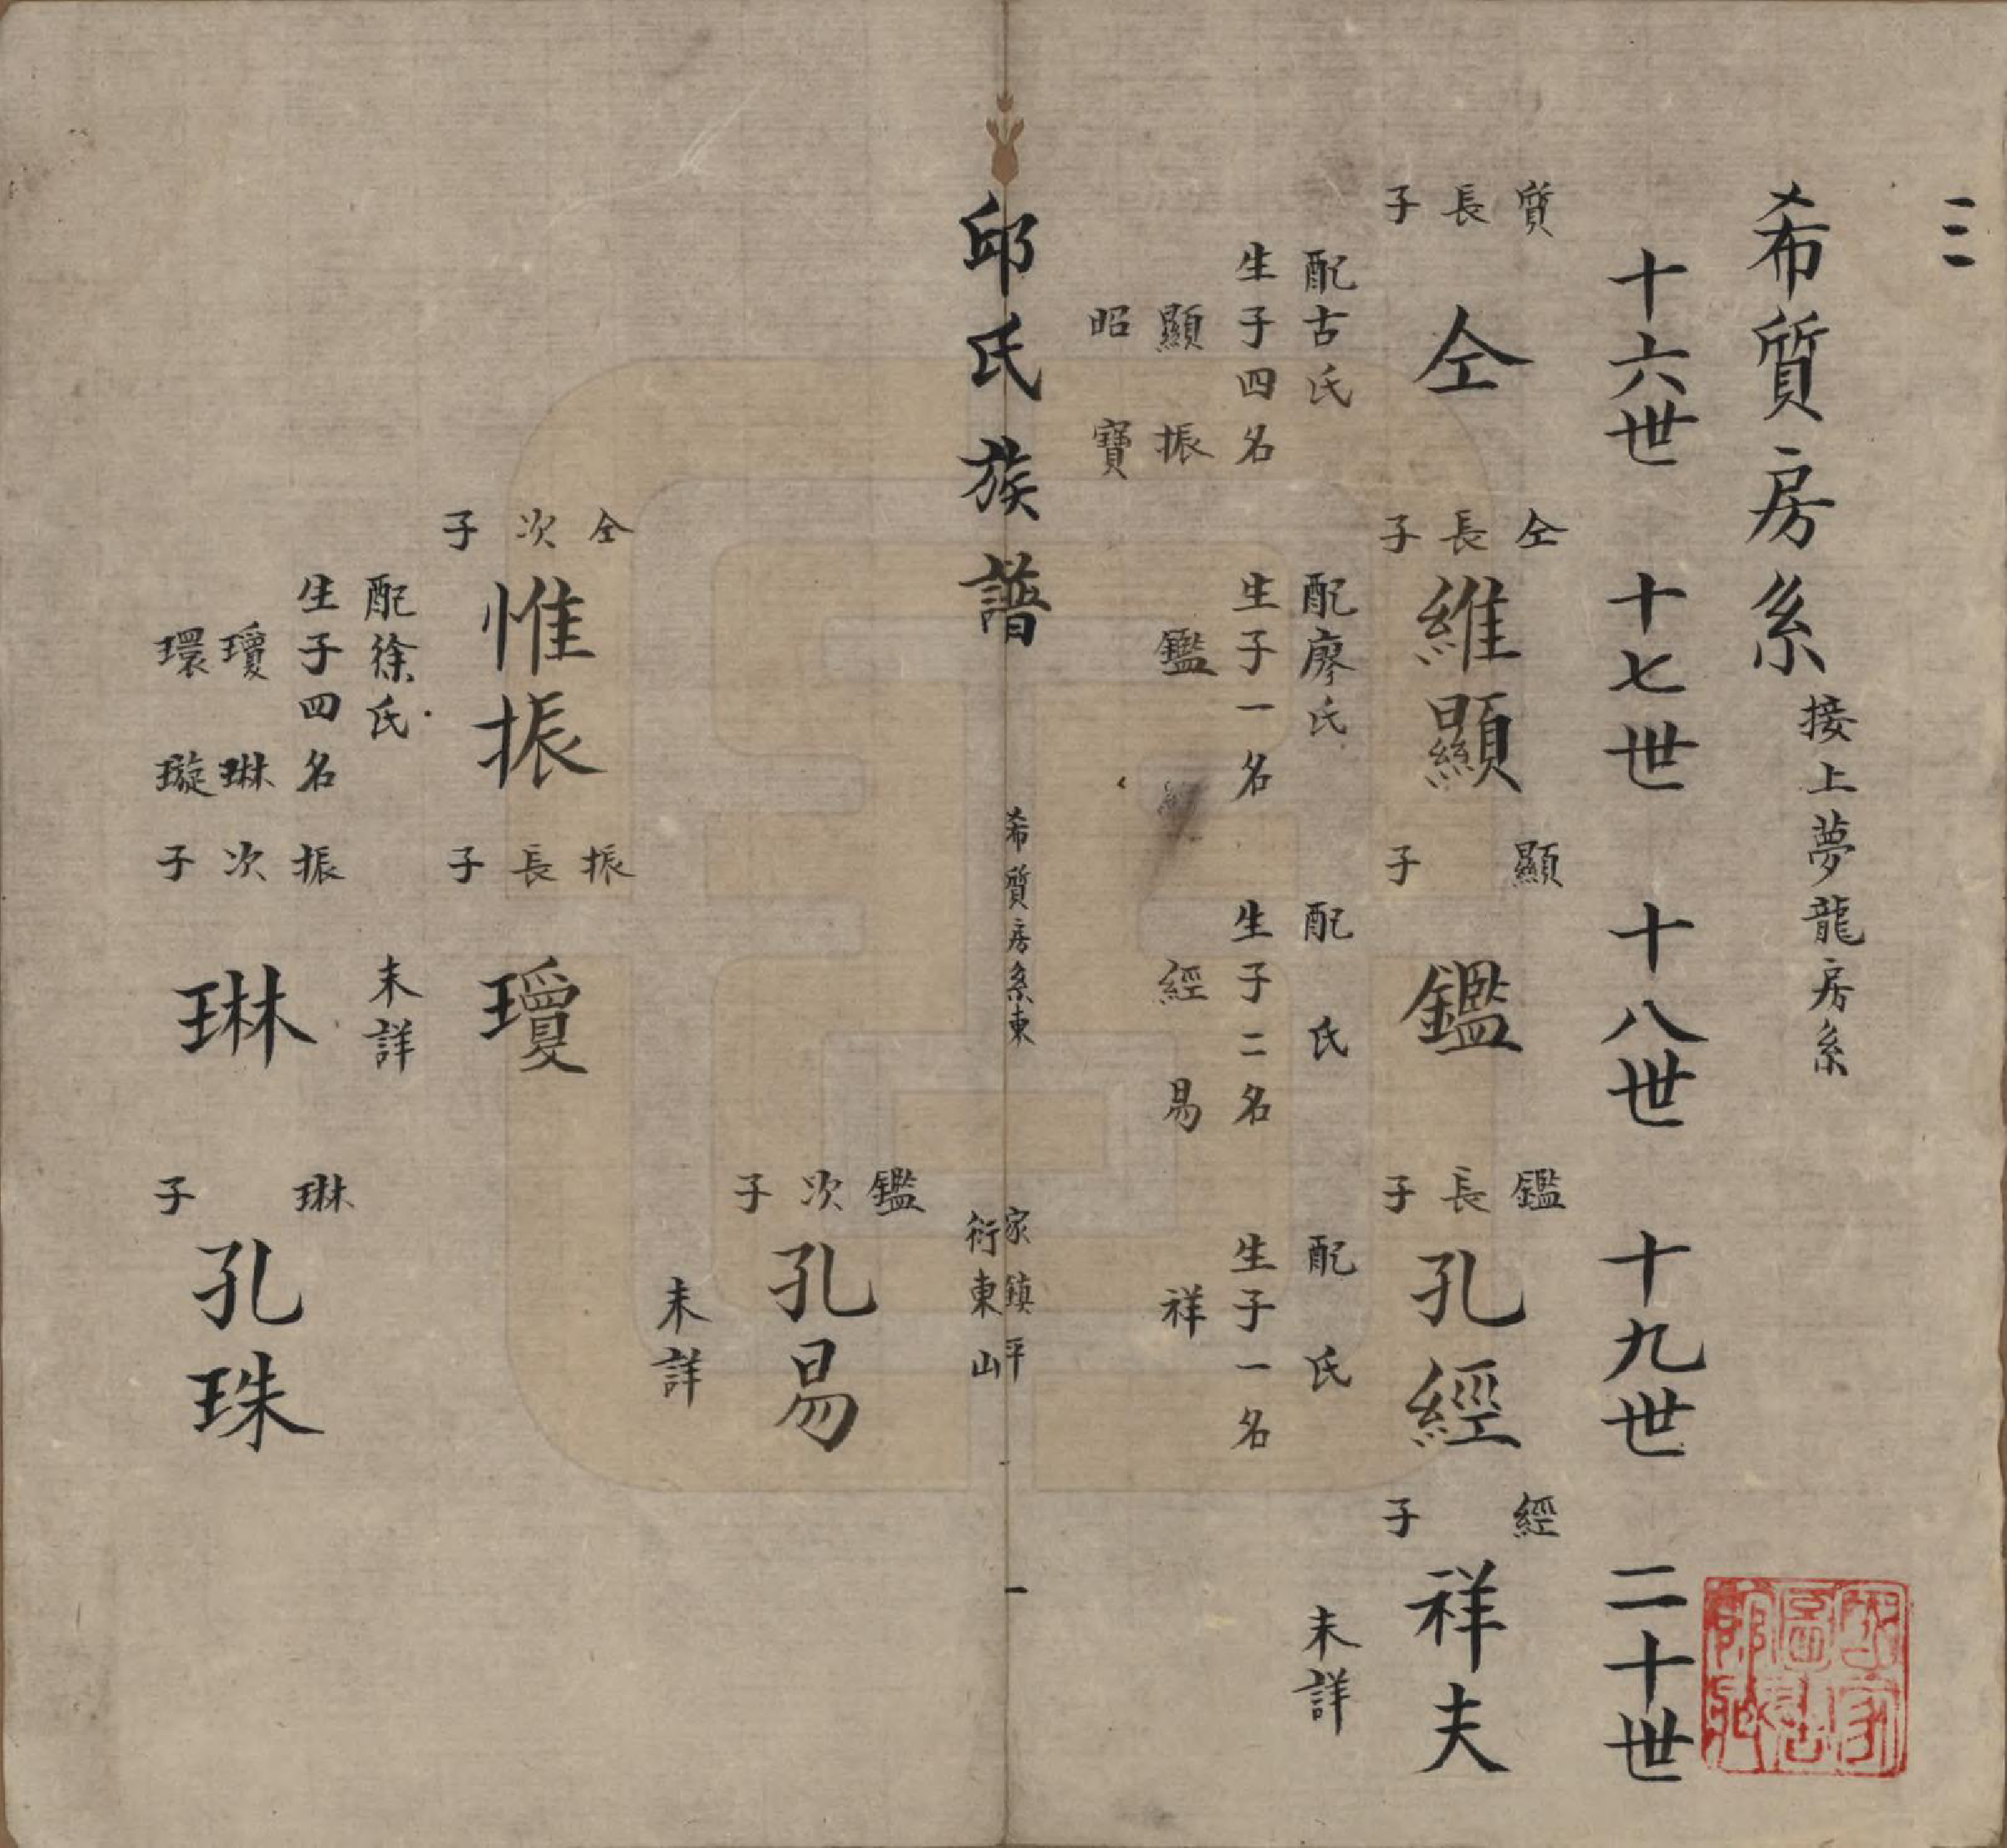 三
希質房系 接上夢龍房系
十六世
十七世
十八世
十九世
二十世
質長子
仝
配古氏
生子四名
顯 振
昭 寶
仝長子
維顯
配廖氏
生子一名
鑑
顯 子
鑑
配 氏
生子二名
經 易
鑑長子
孔經
配 氏
生子一名
祥
經 子
祥夫
未詳
邱氏族譜
希質房系東
家鎮平
衍東山
一
鑑次子
孔易
未詳
仝次子
惟振
配徐氏
生子四名
瓊 琳
環 璇
振長子
瓊
未詳
振次子
琳
琳 子
孔珠